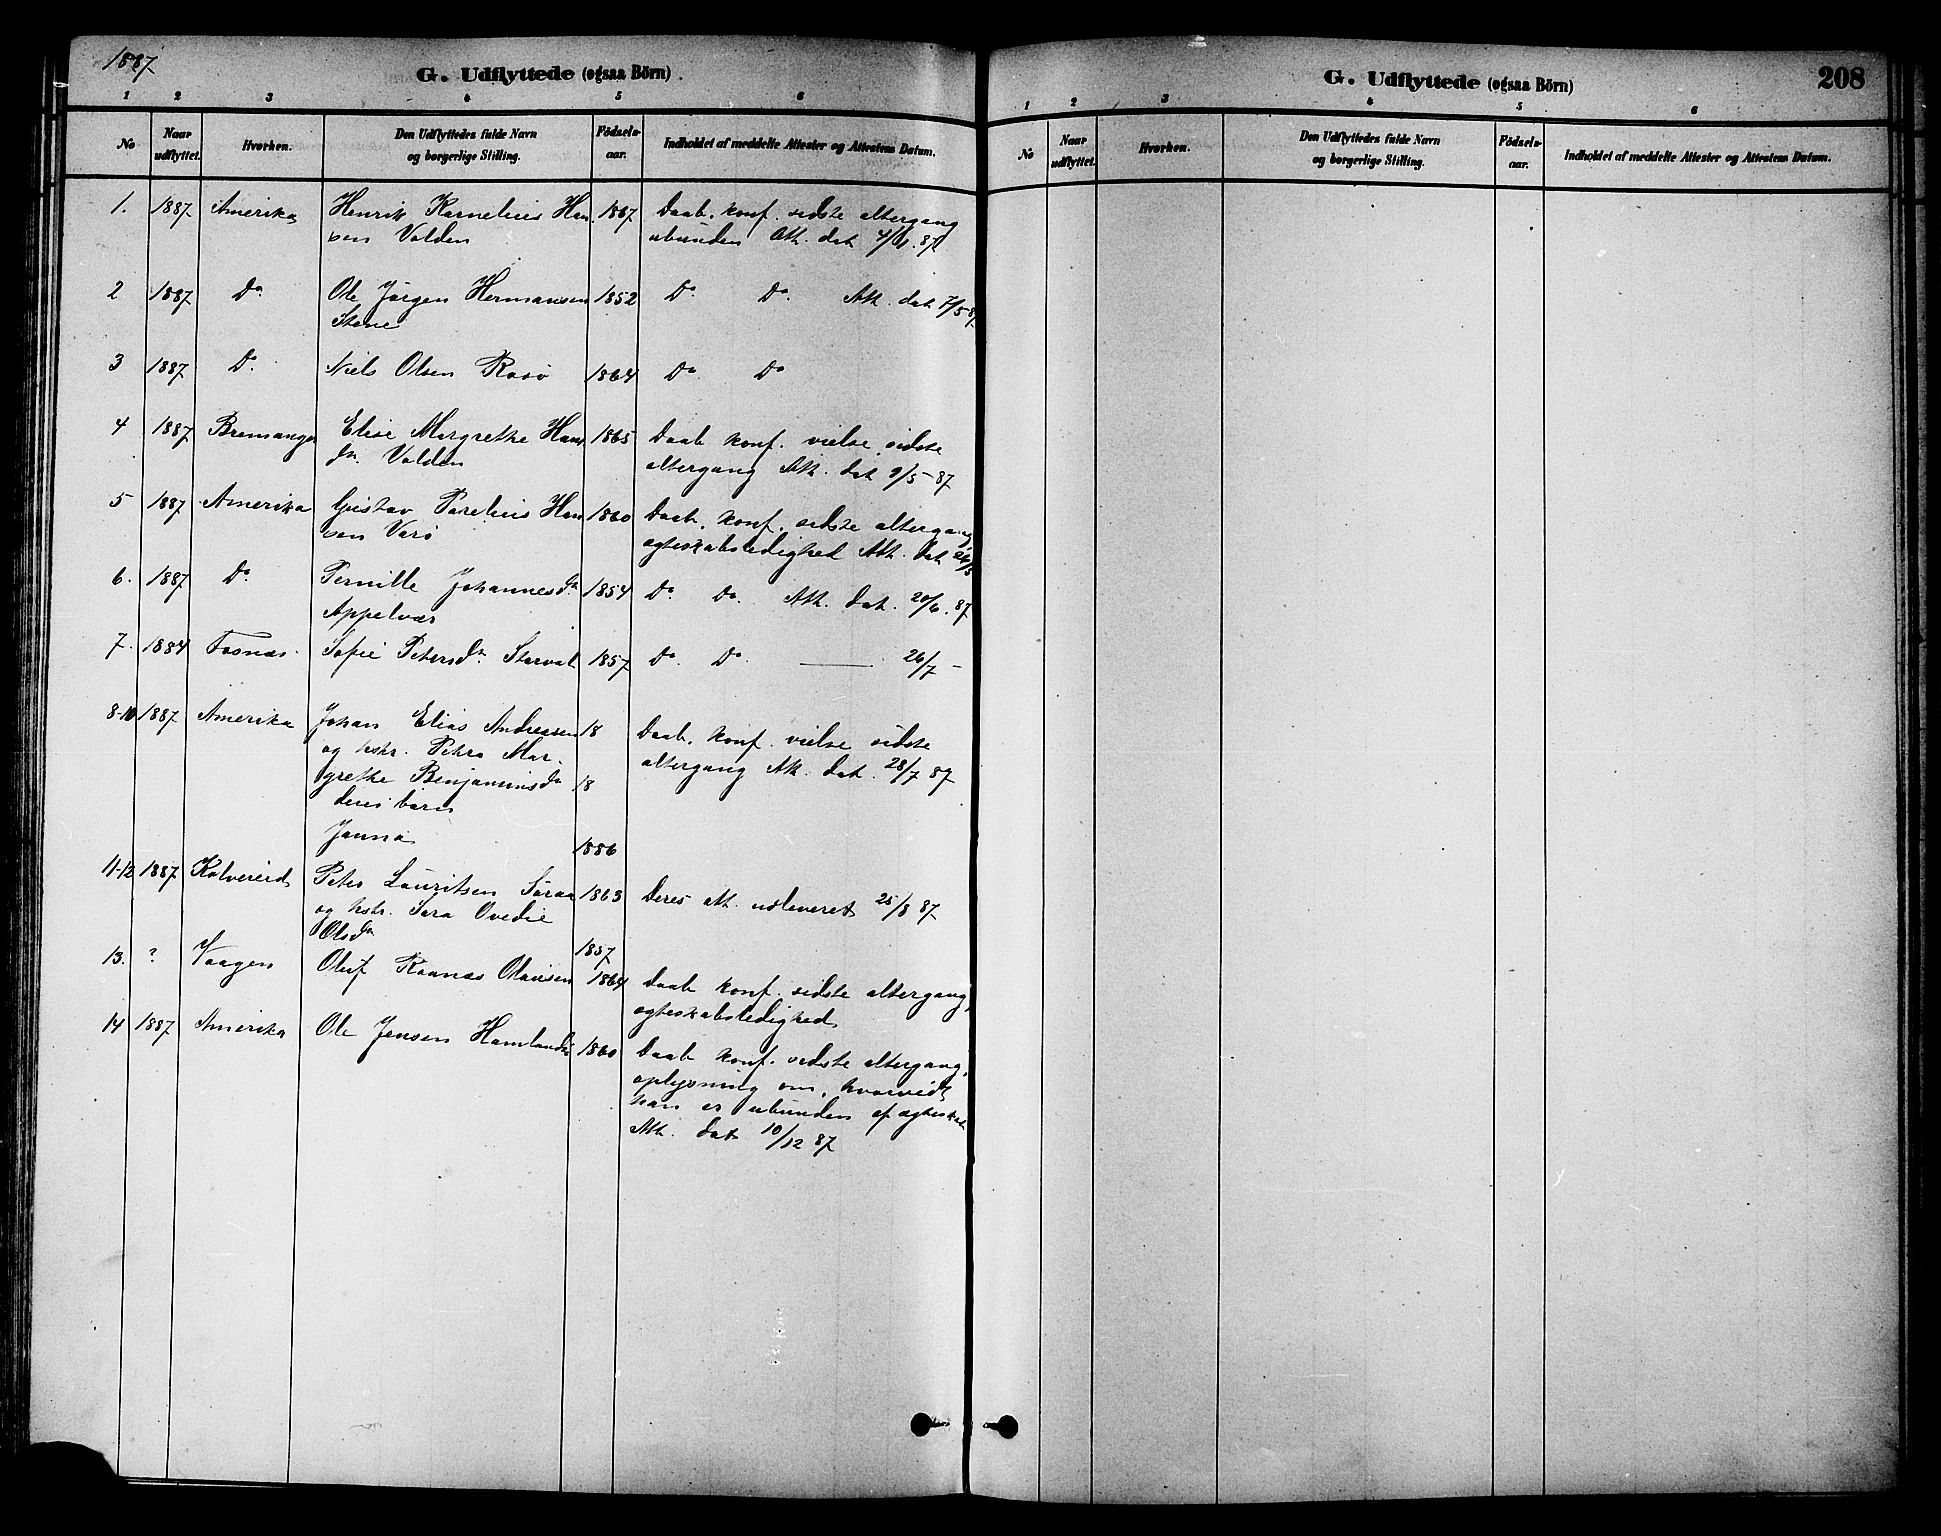 1887
G. Udflyttede (ogsaa Börn).
1 2 3 4 5 6
No
Naar udflyttet.
Hvorhen.
Den Udflyttedes fulde Navn og borgerlige Stilling.
Födsels-aar.
Indholdet af meddelte Attester og Attestens Datum.
1. 1887 Amerika Henrik Kornelius Han 1867 Daab. konf. sidste altergang
sen Valden ubunden Att. dat 4/4. 87
2 1887 Do. Ole Jörgen Hermansen 1852 Do. Do. Att. dat 7/5 87
Stene
3 1887 Do. Niels Olsen Rosö 1864 Do. Do
4 1887 Bremanger Elise Margrethe Hans 1865 Daab konf. vielse, sidste
dn. Valden altergang Att. dat 9/5 - 87
5 1887 Amerika Gustav Parelius Han 1860 Daab. konf. sidste altergang,
sen Varö egteskabsledighed Att. dat 24/5
6. 1887 Do. Pernille Johannesdn 1854 Do. Do. Att. dat. 20/6. 87
Appelvær
7. 1884 Fosnæs. Sofie Petersdn. Storval 1857 Do. Do. — 26/7 -
8-10 1887 Amerika Johan Elias Andreasen 18 Daab. konf. vielse sidste
og hstr. Petra Mar- altergang Att. dat. 28/7 87
grethe Benjaminsdn 18
deres barn
Janna 1886
11-12 1887 Kolvereid Peter Lauritsen Söraa 1863 Deres att. udleveret 25/8 87
og hstr. Sara Ovedie
Olsdn 1857
13. ? Vaagen Oluf Raanæs Olausen 1864 Daab konf. sidste altergang,
egteskabsledighed
14 1887 Amerika Ole Jensen Hamland 1860 Daab konf. sidste altergang,
oplysning om, hvorvidt
han er ubunden af egteskab
Att. dat 10/12 87
G. Udflyttede (ogsaa Börn)
208
1 2 3 4 5 6
No
Naar udflyttet.
Hvorhen.
Den Udflyttedes fulde Navn og borgerlige Stilling.
Födsels-aar.
Indholdet af meddelte Attester og Attestens Datum.